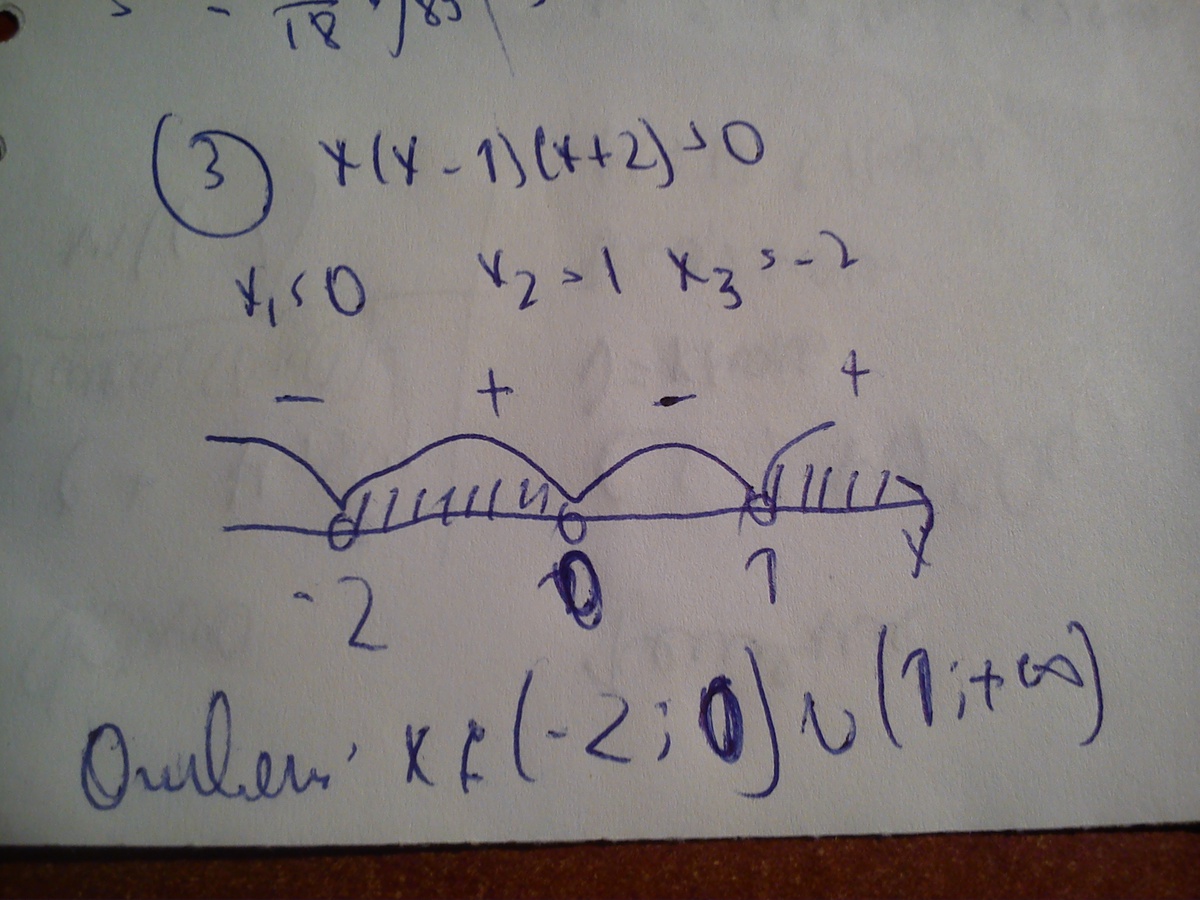 18
③ x(x-1)(x+2)>0
x₁=0 x₂=1 x₃=-2
- + - +
-2 0 1 x
Ответ: x∈(-2;0)∪(1;+∞)